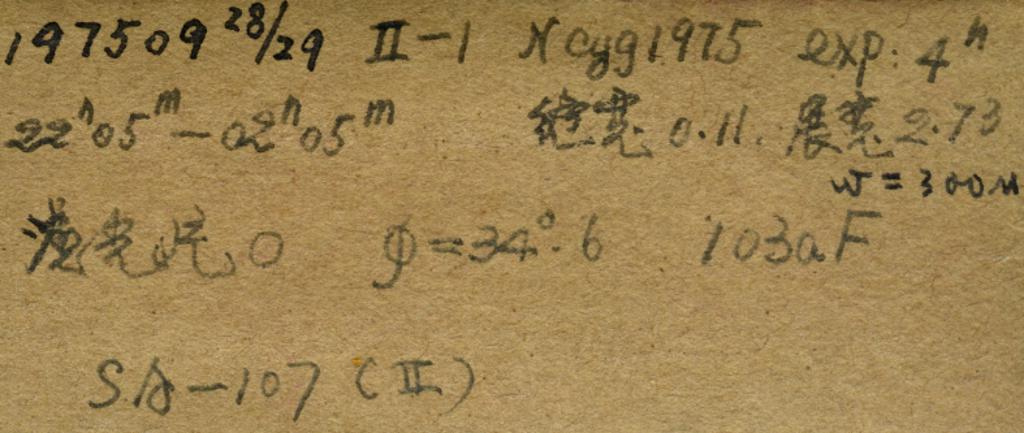 197509 28/29 II-1 N Cyg 1975 exp: 4ʰ
22ʰ05ᵐ-02ʰ05ᵐ 缝宽 0.11. 展宽 2.73
w=300μ
滤光片 0 φ=34°.6 103aF
SA-107 (II)